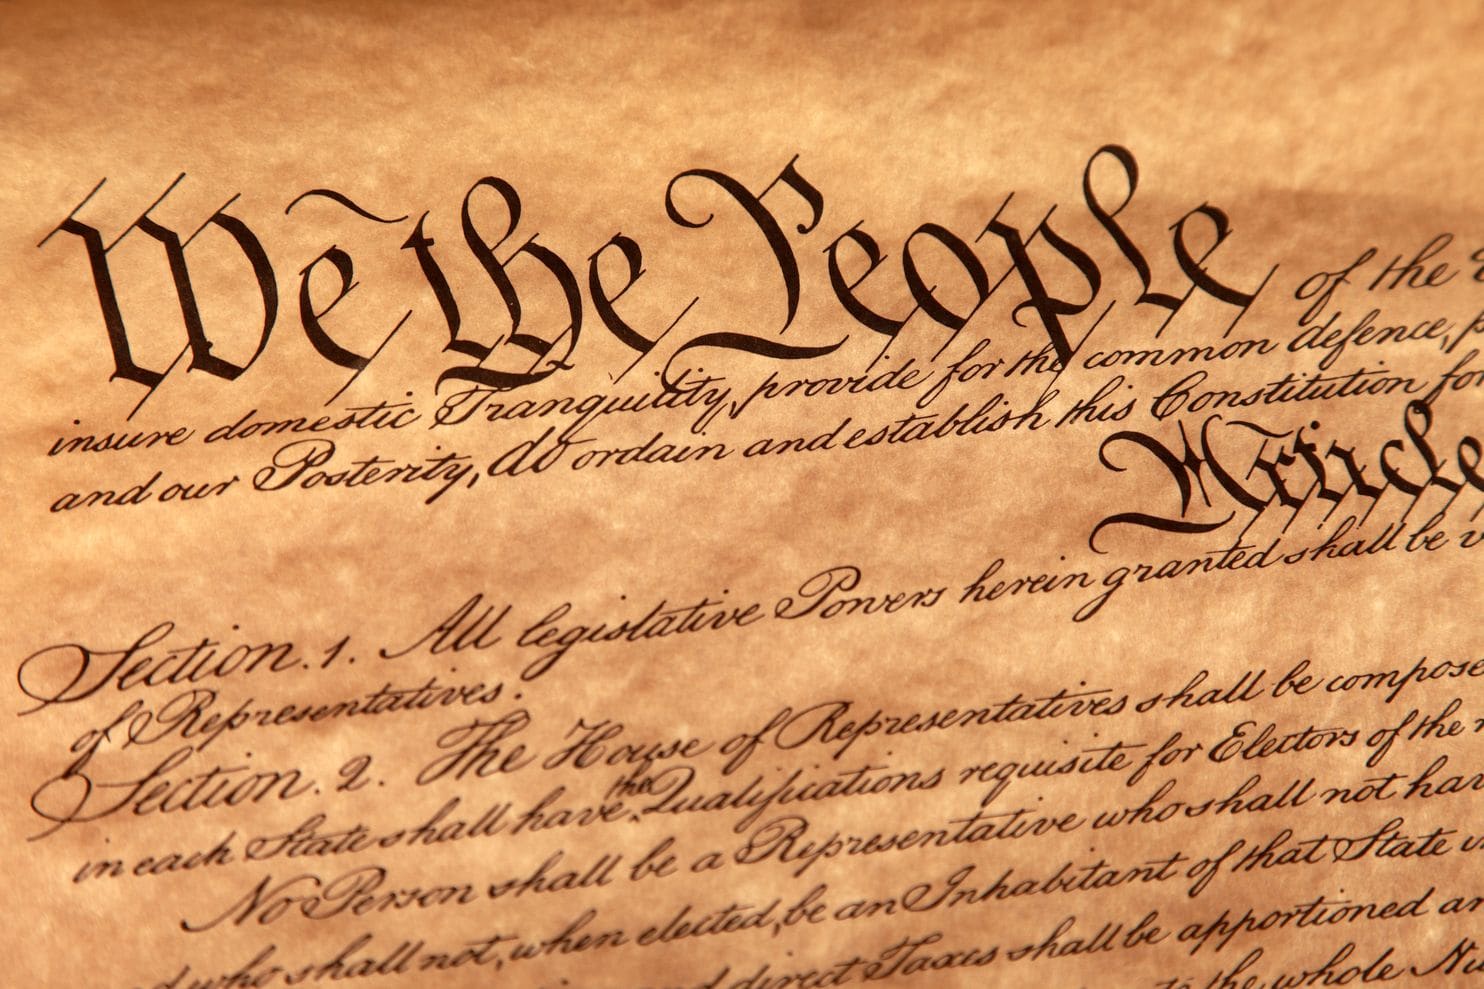 We the People of the
insure domestic Tranquility, provide for the common defence,
and our Posterity, do ordain and establish this Constitution for
Article
Section. 1. All legislative Powers herein granted shall be
of Representatives.
Section. 2. The House of Representatives shall be compose
in each State shall have the Qualifications requisite for Electors of the
No Person shall be a Representative who shall not hav
d who shall not, when elected, be an Inhabitant of that State
direct Taxes shall be apportioned
the whole Nu